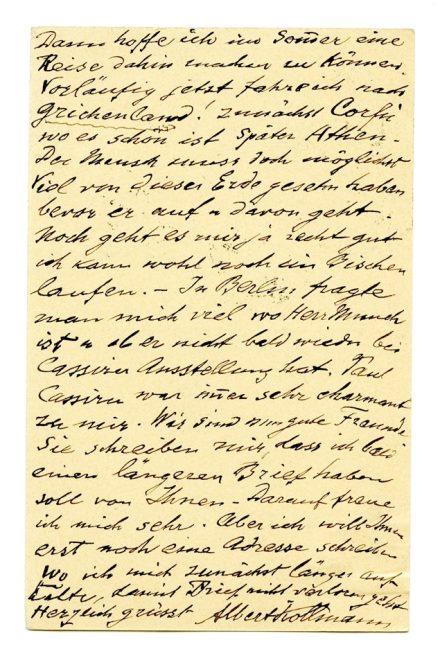 Dann hoffe ich im Somer eine
Reise dahin machen zu können.
Vorläufig jetzt fahre ich nach
Grichenland! zunächst Corfu
wo es schön ist später Athen -
Der Mensch muss doch möglichst
Viel von dieser Erde gesehn haben
bevor er auf u davon geht.
Noch geht es mir ja recht gut
ich kann wohl noch ein Bischen
laufen. - In Berlin fragte
man mich viel wo Herr Munch
ist u ob er nicht bald wieder bei
Cassirer Ausstellung hat. Paul
Cassirer war imer sehr charmant
zu mir. Wir sind nun gute Freunde.
Sie schreiben mir, dass ich bald
einen längeren Brief haben
soll von Ihnen - Darauf freue
ich mich sehr. Aber ich will Ihnen
erst noch eine Adresse schreiben
Wo ich mich zunächst länger auf
halte, damit Brief nicht verloren geht
Herzlich grüsst Albert Kollmann